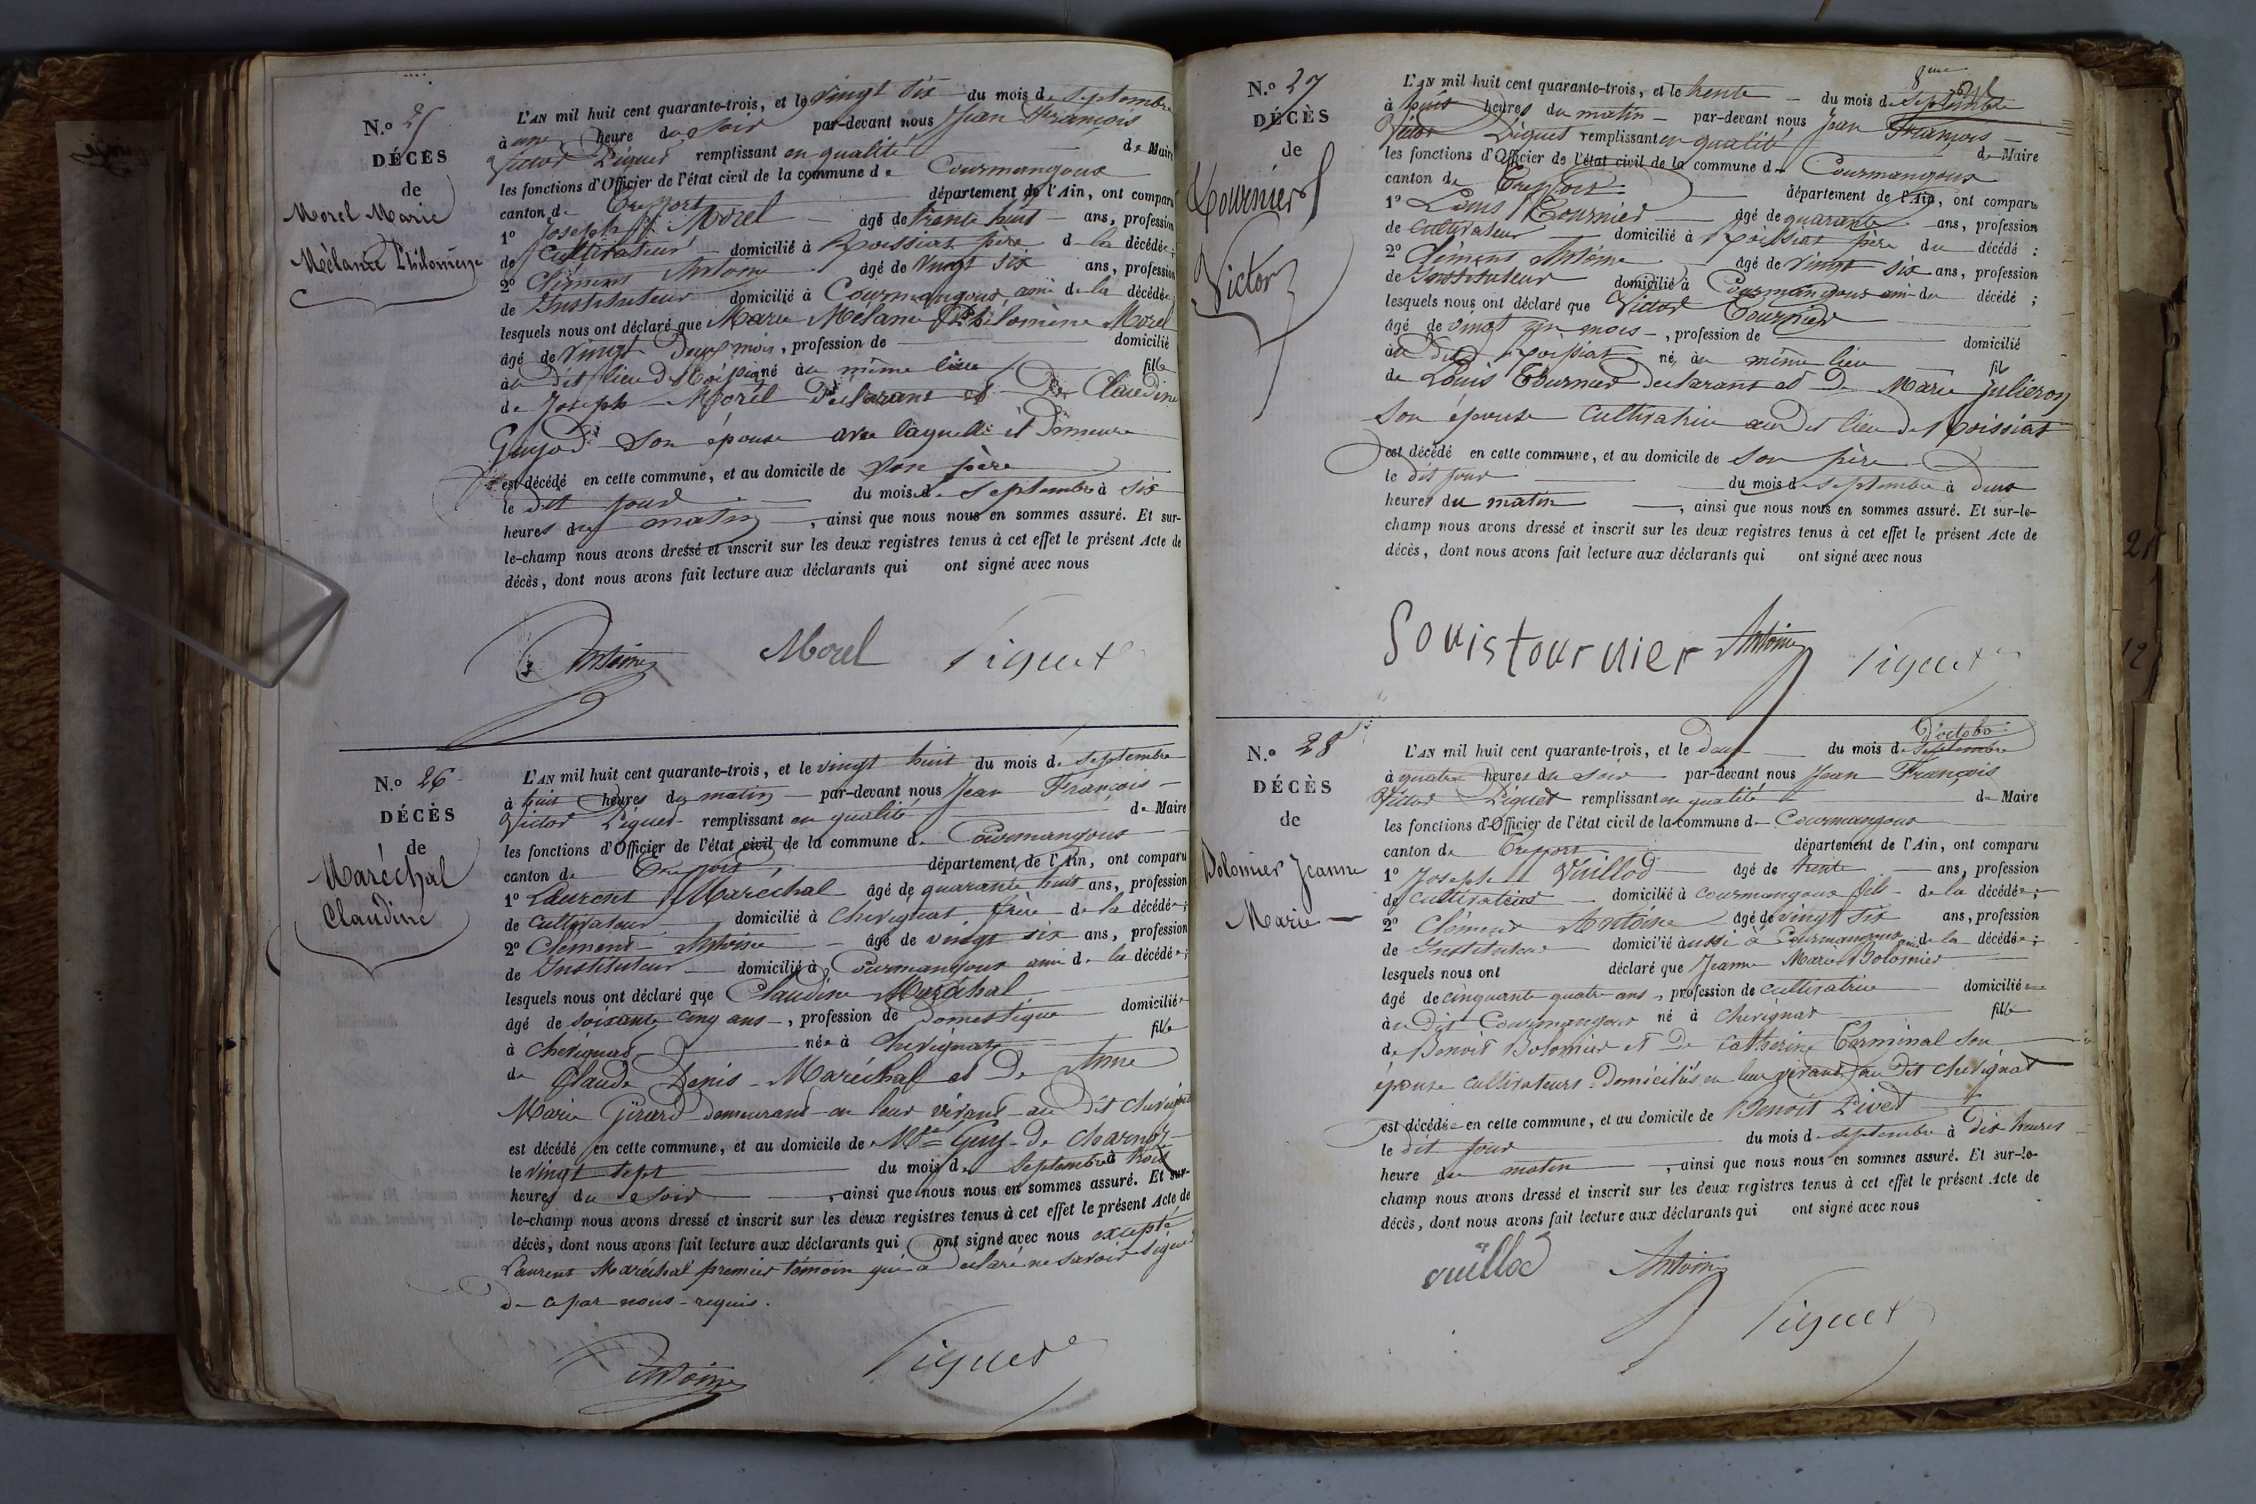 N.o 25
DÉCÈS
de
Morel Marie
Mélanie Philomène
L'AN mil huit cent quarante-trois, et le vingt six du mois de septembre
à une heure du soir par-devant nous Jean François
Victor Piquet remplissant en qualité de Maire
les fonctions d'Officier de l'état civil de la commune de Courmangoux
canton de Treffort département de l'Ain, ont comparu
1o Joseph Morel âgé de trente huit ans, profession
de Cultivateur domicilié à Roissiat père de la décédée;
2o Clément Antoine âgé de vingt six ans, profession
de Instituteur domicilié à Courmangoux ami de la décédée
lesquels nous ont déclaré que Marie Mélanie Philomène Morel
âgé de vingt deux mois, profession de domicilié
au dit lieu de Roissiat né au même lieu fille
de Joseph Morel Déclarant et De Claudine
Guyod son épouse avec laquelle il Demeure
est décédé en cette commune, et au domicile de son père
le dit jour du mois de septembre à six
heures du matin, ainsi que nous nous en sommes assuré. Et sur-
le-champ nous avons dressé et inscrit sur les deux registres tenus à cet effet le présent Acte de
décès, dont nous avons fait lecture aux déclarants qui ont signé avec nous
Antoine Morel Piquet
N.o 26
DÉCÈS
de
Maréchal
Claudine
L'AN mil huit cent quarante-trois, et le vingt huit du mois de septembre
à huit heures du matin par-devant nous Jean François
Victor Piquet remplissant en qualité de Maire
les fonctions d'Officier de l'état civil de la commune de Courmangoux
canton de Treffort département de l'Ain, ont comparu
1o Laurent Maréchal âgé de quarante huit ans, profession
de cultivateur domicilié à Chevignat frère de la décédée;
2o Clément Antoine âgé de vingt six ans, profession
de Instituteur domicilié à Courmangoux ami de la décédée;
lesquels nous ont déclaré que Claudine Maréchal
âgé de soixante cinq ans, profession de Domestique domiciliée
à Chevignat née à Chevignat fille
de Claude Denis Maréchal et De Anne
Marie Girard demeurant en leur vivant au dit Chevignat
est décédé en cette commune, et au domicile de Mr Guy de Charnoz
le vingt sept du mois de septembre à trois
heures du soir, ainsi que nous nous en sommes assuré. Et sur-
le-champ nous avons dressé et inscrit sur les deux registres tenus à cet effet le présent Acte de
décès, dont nous avons fait lecture aux déclarants qui ont signé avec nous excepté
Laurent Maréchal premier témoin qui a déclaré ne savoir signer
de ce par nous requis.
Antoine Piquet
N.o 27
DÉCÈS
de
Tournier
Victor
8me
L'AN mil huit cent quarante-trois, et le trente du mois de septembre
à huit heures du matin par-devant nous Jean François
Victor Piquet remplissant en qualité de Maire
les fonctions d'Officier de l'état civil de la commune de Courmangoux
canton de Treffort département de l'Ain, ont comparu
1o Louis Tournier âgé de quarante ans, profession
de Cultivateur domicilié à Roissiat père du décédé :
2o Clément Antoine âgé de vingt six ans, profession
de Instituteur domicilié à Courmangoux ami du décédé ;
lesquels nous ont déclaré que Victor Tournier
âgé de vingt un mois, profession de domicilié
au dit Roissiat né au même lieu fils
de Louis Tournier déclarant et De Marie Julieron
son épouse cultivatrice au dit lieu de Roissiat
est décédé en cette commune, et au domicile de son père
le dit jour du mois de septembre à deux
heures du matin, ainsi que nous nous en sommes assuré. Et sur-le-
champ nous avons dressé et inscrit sur les deux registres tenus à cet effet le présent Acte de
décès, dont nous avons fait lecture aux déclarants qui ont signé avec nous
Louis tournier Antoine Piquet
N.o 28
DÉCÈS
de
Bolomier Jeanne
Marie
D'octobre
L'AN mil huit cent quarante-trois, et le deux du mois de septembre
à quatre heures du soir par-devant nous Jean François
Victor Piquet remplissant en qualité de Maire
les fonctions d'Officier de l'état civil de la commune de Courmangoux
canton de Treffort département de l'Ain, ont comparu
1o Joseph Vuillod âgé de trente ans, profession
de cultivateur domicilié à Courmangoux fils de la décédée;
2o Clément Antoine âgé de vingt six ans, profession
de Instituteur domicilié aussi à Courmangoux ami de la décédée;
lesquels nous ont déclaré que Jeanne Marie Bolomier
âgé de cinquante quatre ans, profession de cultivatrice domiciliée
au dit Courmangoux né à Chevignat fille
de Benoit Bolomier et De Catherine Terminal son
épouse cultivateurs Domiciliés en leur vivant au dit Chevignat
est décédée en cette commune, et au domicile de Benoit Pivet
le dit jour du mois de septembre à dix heures
heure du matin, ainsi que nous nous en sommes assuré. Et sur-le-
champ nous avons dressé et inscrit sur les deux registres tenus à cet effet le présent Acte de
décès, dont nous avons fait lecture aux déclarants qui ont signé avec nous
vuillod Antoine Piquet